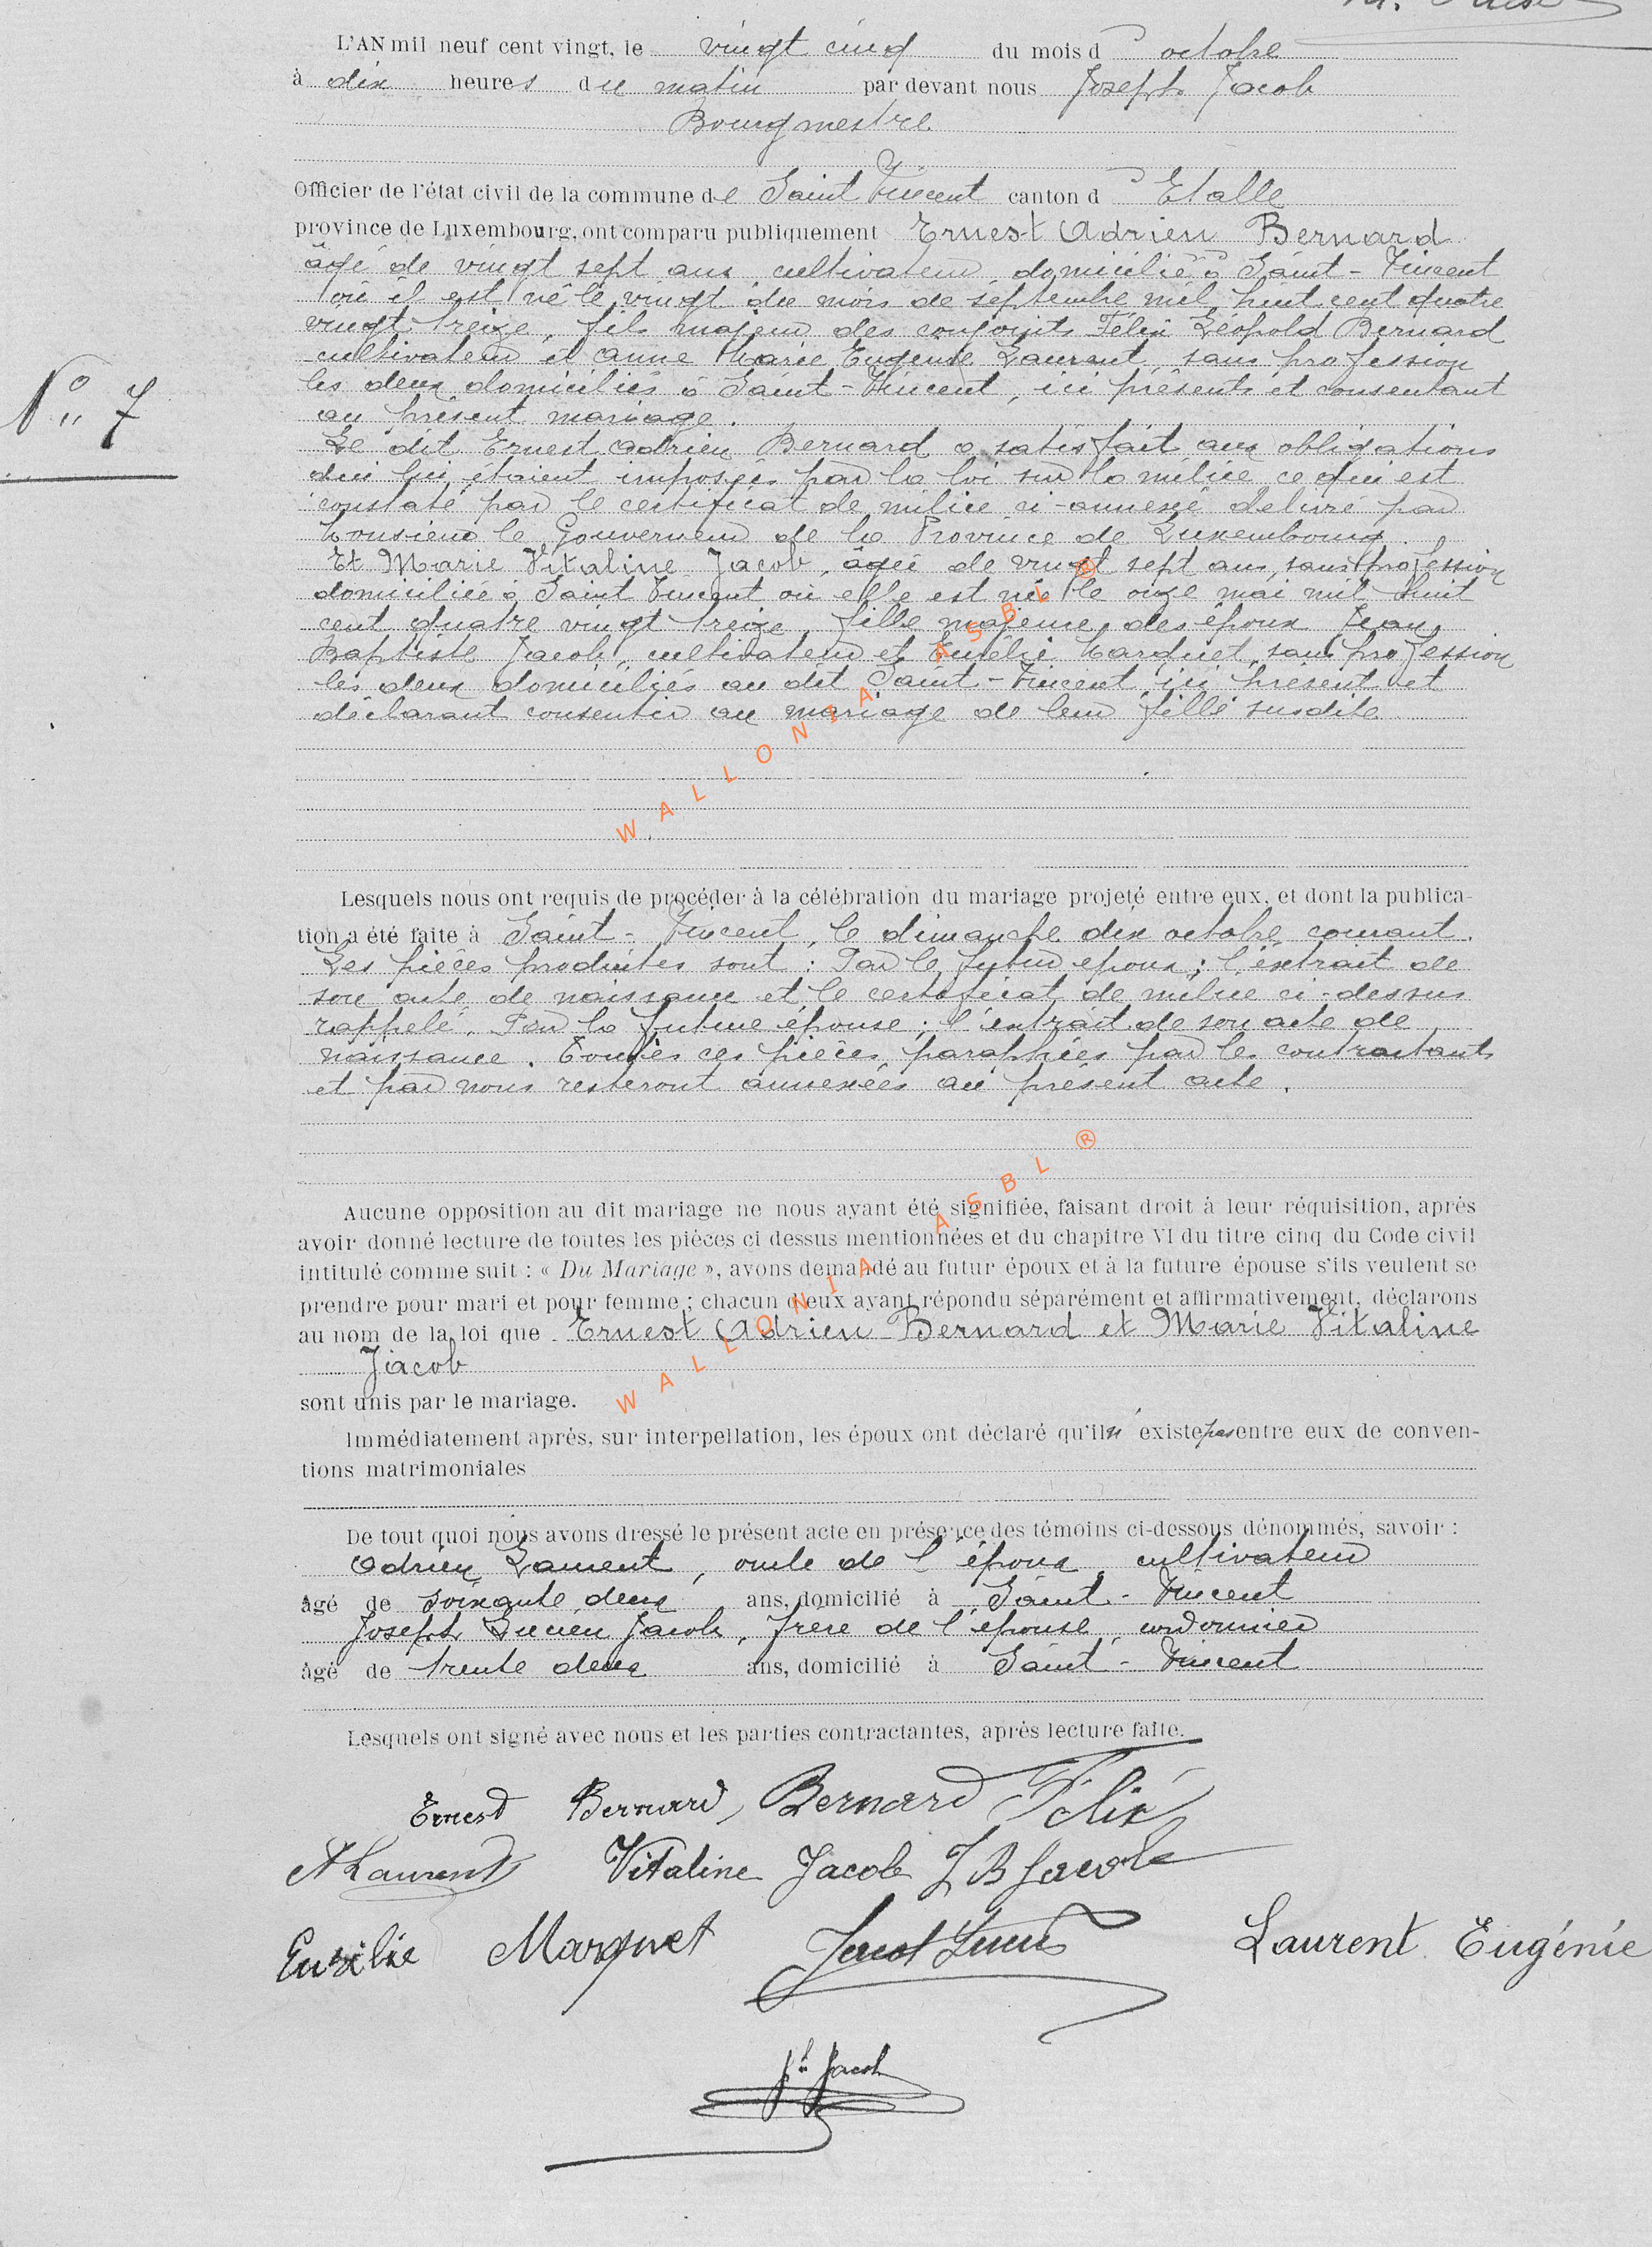 L'AN mil neuf cent vingt, le vingt cinq du mois d' octobre
à dix heures du matin par devant nous Joseph Jacob
Bourgmestre
Officier de l'état civil de la commune de Saint Vincent canton d' Etalle
province de Luxembourg, ont comparu publiquement Ernest Adrien Bernard
âgé de vingt sept ans cultivateur domicilié à Saint-Vincent
où il est né le vingt du mois de septembre mil huit cent quatre
vingt treize, fils majeur des conjoints Félix Léopold Bernard
cultivateur et Anne Marie Eugénie Laurent, sans profession
les deux domiciliés à Saint-Vincent, ici présents et consentant
au présent mariage.
N° 7
Le dit Ernest Adrien Bernard a satisfait aux obligations
qui lui étaient imposées par la loi sur la milice ce qui est
constaté par le certificat de milice ci-annexé delivré par
Monsieur le Gouverneur de la Province de Luxembourg.
Et Marie Vitaline Jacob, âgée de vingt sept ans, sans profession
domiciliée à Saint Vincent où elle est née le onze mai mil huit
cent quatre vingt treize, fille majeure des époux Jean
Baptiste Jacob, cultivateur et Eusélie Marquet, sans profession
les deux domiciliés au dit Saint-Vincent ici présent et
déclarant consentir au mariage de leur fille susdite
WALLONIA ASBL ®
Lesquels nous ont requis de procéder à la célébration du mariage projeté entre eux, et dont la publica-
tion a été faite à Saint-Vincent, le dimanche dix octobre courant.
Les pièces produites sont : Par le futur époux ; l'extrait de
son acte de naissance et le certificat de milice ci-dessus
rappelé. Par la future épouse ; l'extrait de son acte de
naissance. Toutes ces pièces paraphées par les contractants
et par nous resteront annexées au présent acte.
Aucune opposition au dit mariage ne nous ayant été signifiée, faisant droit à leur réquisition, après
avoir donné lecture de toutes les pièces ci dessus mentionnées et du chapitre VI du titre cinq du Code civil
intitulé comme suit : « Du Mariage », avons demandé au futur époux et à la future épouse s'ils veulent se
prendre pour mari et pour femme ; chacun d'eux ayant répondu séparément et affirmativement, déclarons
au nom de la loi que Ernest Adrien Bernard et Marie Vitaline
Jacob
WALLONIA ASBL ®
sont unis par le mariage.
Immédiatement après, sur interpellation, les époux ont déclaré qu'il n'existe pas entre eux de conven-
tions matrimoniales
De tout quoi nous avons dressé le présent acte en présence des témoins ci-dessous dénommés, savoir :
Adrien Laurent, oncle de l'époux, cultivateur
âgé de soixante deux ans, domicilié à Saint-Vincent
Joseph Lucien Jacob, frère de l'épouse, cordonnier
âgé de trente deux ans, domicilié à Saint-Vincent
Lesquels ont signé avec nous et les parties contractantes, après lecture faite.
Ernest Bernard Bernard Félix
A Laurent Vitaline Jacob J B Jacob
Eusélie Marquet Jacob Lucien Laurent Eugénie
Jh Jacob